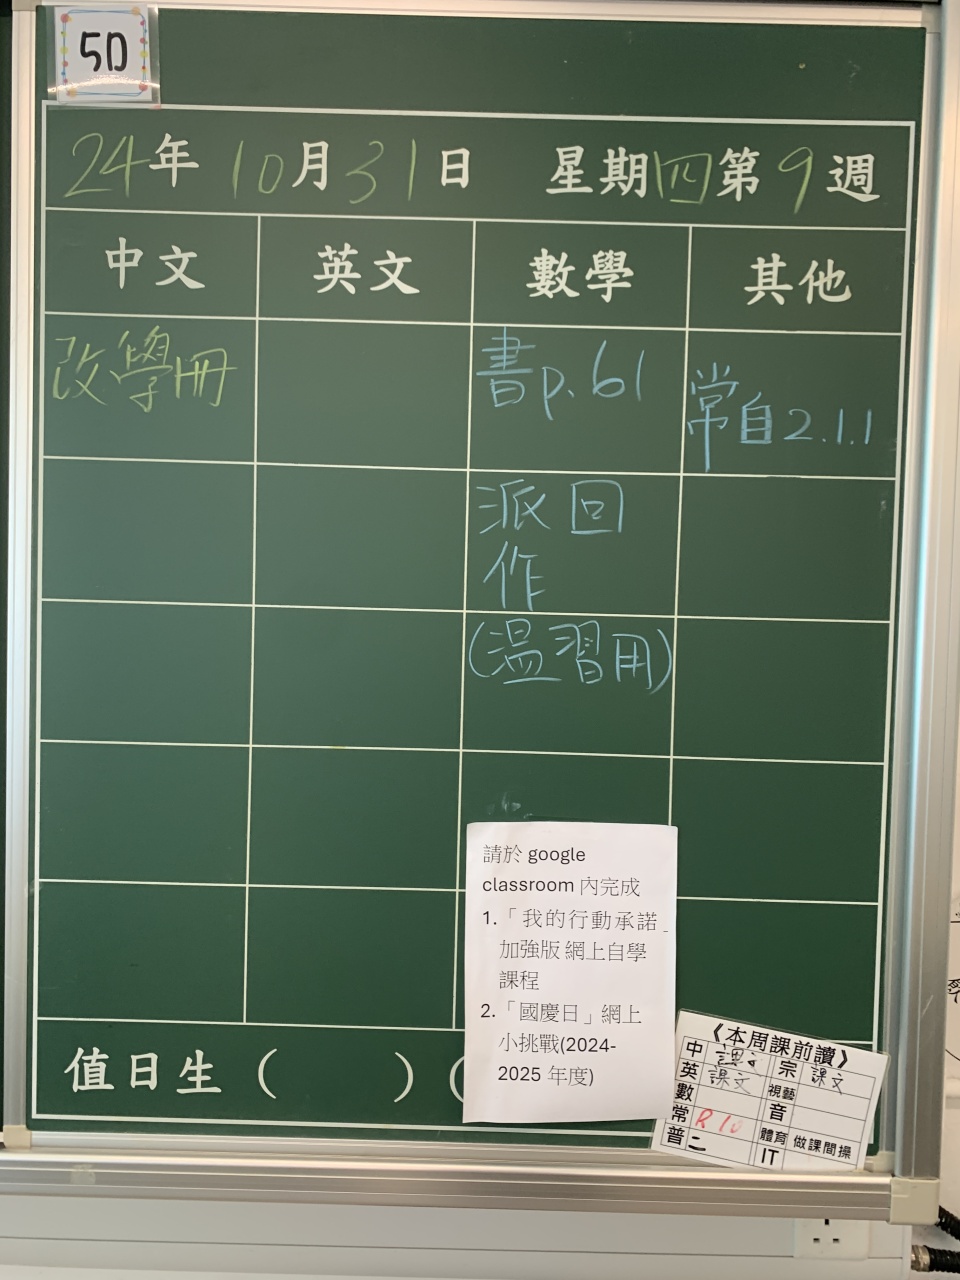 5D
24年10月31日 星期四第9週
中文 英文 數學 其他
改學冊 書p.61 常自2.1.1
派回
作
(溫習用)
請於 google
classroom 內完成
1.「我的行動承諾_
加強版 網上自學
課程
2.「國慶日」網上
小挑戰(2024-
2025 年度)
值日生 ( ) (
《本周課前讀》
中 課文 宗 課文
英 課文 視藝
數 音
常 R 10 體育 做課間操
普 二 IT